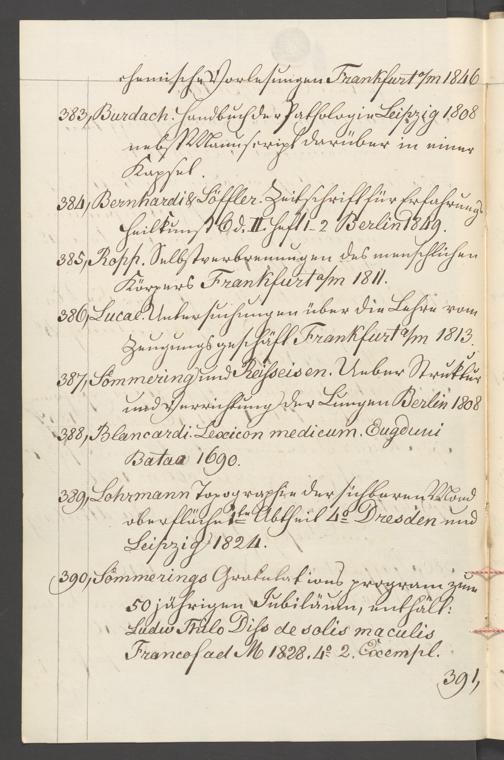 chemische Vorlesungen Frankfurt a/m 1846
383, Burdach. Handbuch der Pathologie Leipzig 1808
nebst Manuscript darüber in einer
Kapsel.
384, Bernhardi & Löffler. Zeitschrift für Erfahrungs
heilkunst Bd. II. Heft 1-2 Berlin 1849.
385, Kopp. Selbstverbrennungen des menschlichen
Körpers Frankfurt a/m 1811.
386, Lucae. Untersuchungen über die Lehre vom
Zeugungsgeschäft Frankfurt a/m 1813.
387, Sömmering und Reisseisen. Ueber Struktur
und Verrichtung der Lungen Berlin 1808
388, Blancardi. Lexicon medicum. Lugduni
Bataa 1690.
389, Lohrmann Topographie der sichbaren Mond
oberfläche 1te Abtheil 4º Dresden und
Leipzig 1824.
390, Sömmerings Gratulations program zum
50 jährigen Jubiläum, enthält:
Ludw Thilo Diss de solis maculis
Francof ad M 1828. 4º 2. Exempl.
391,